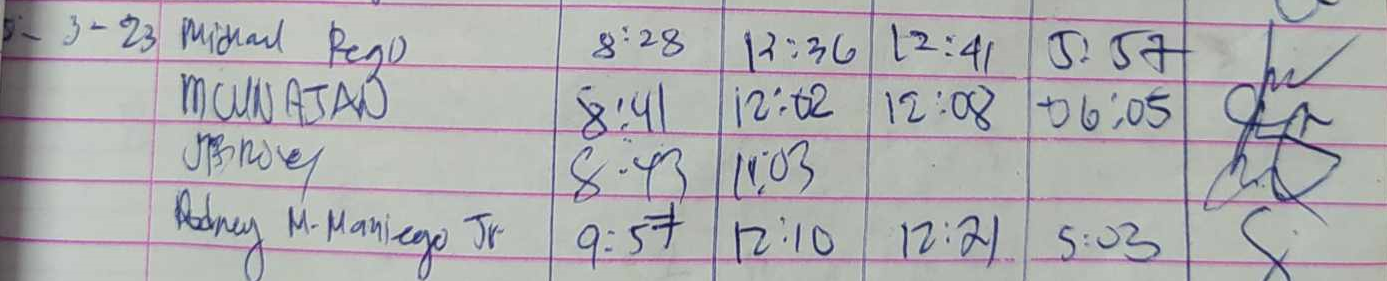 3-23 Michael Rego 8:28 12:36 12:41 5:57
8:41 12:02 12:08 06:05
8:43 11:03
Rodney M. Maniego Jr 9:57 12:10 12:21 5:03